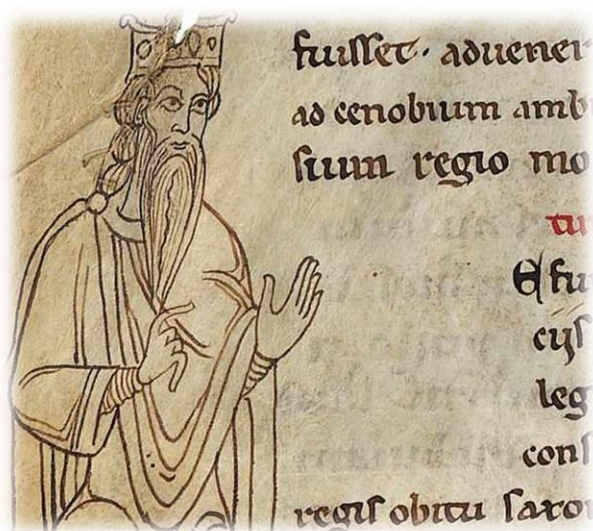 fuisset· aduener
ad cenobium amb
suum regio mo
tu
E fu
cijs
leg
cons
regis obitu saxon